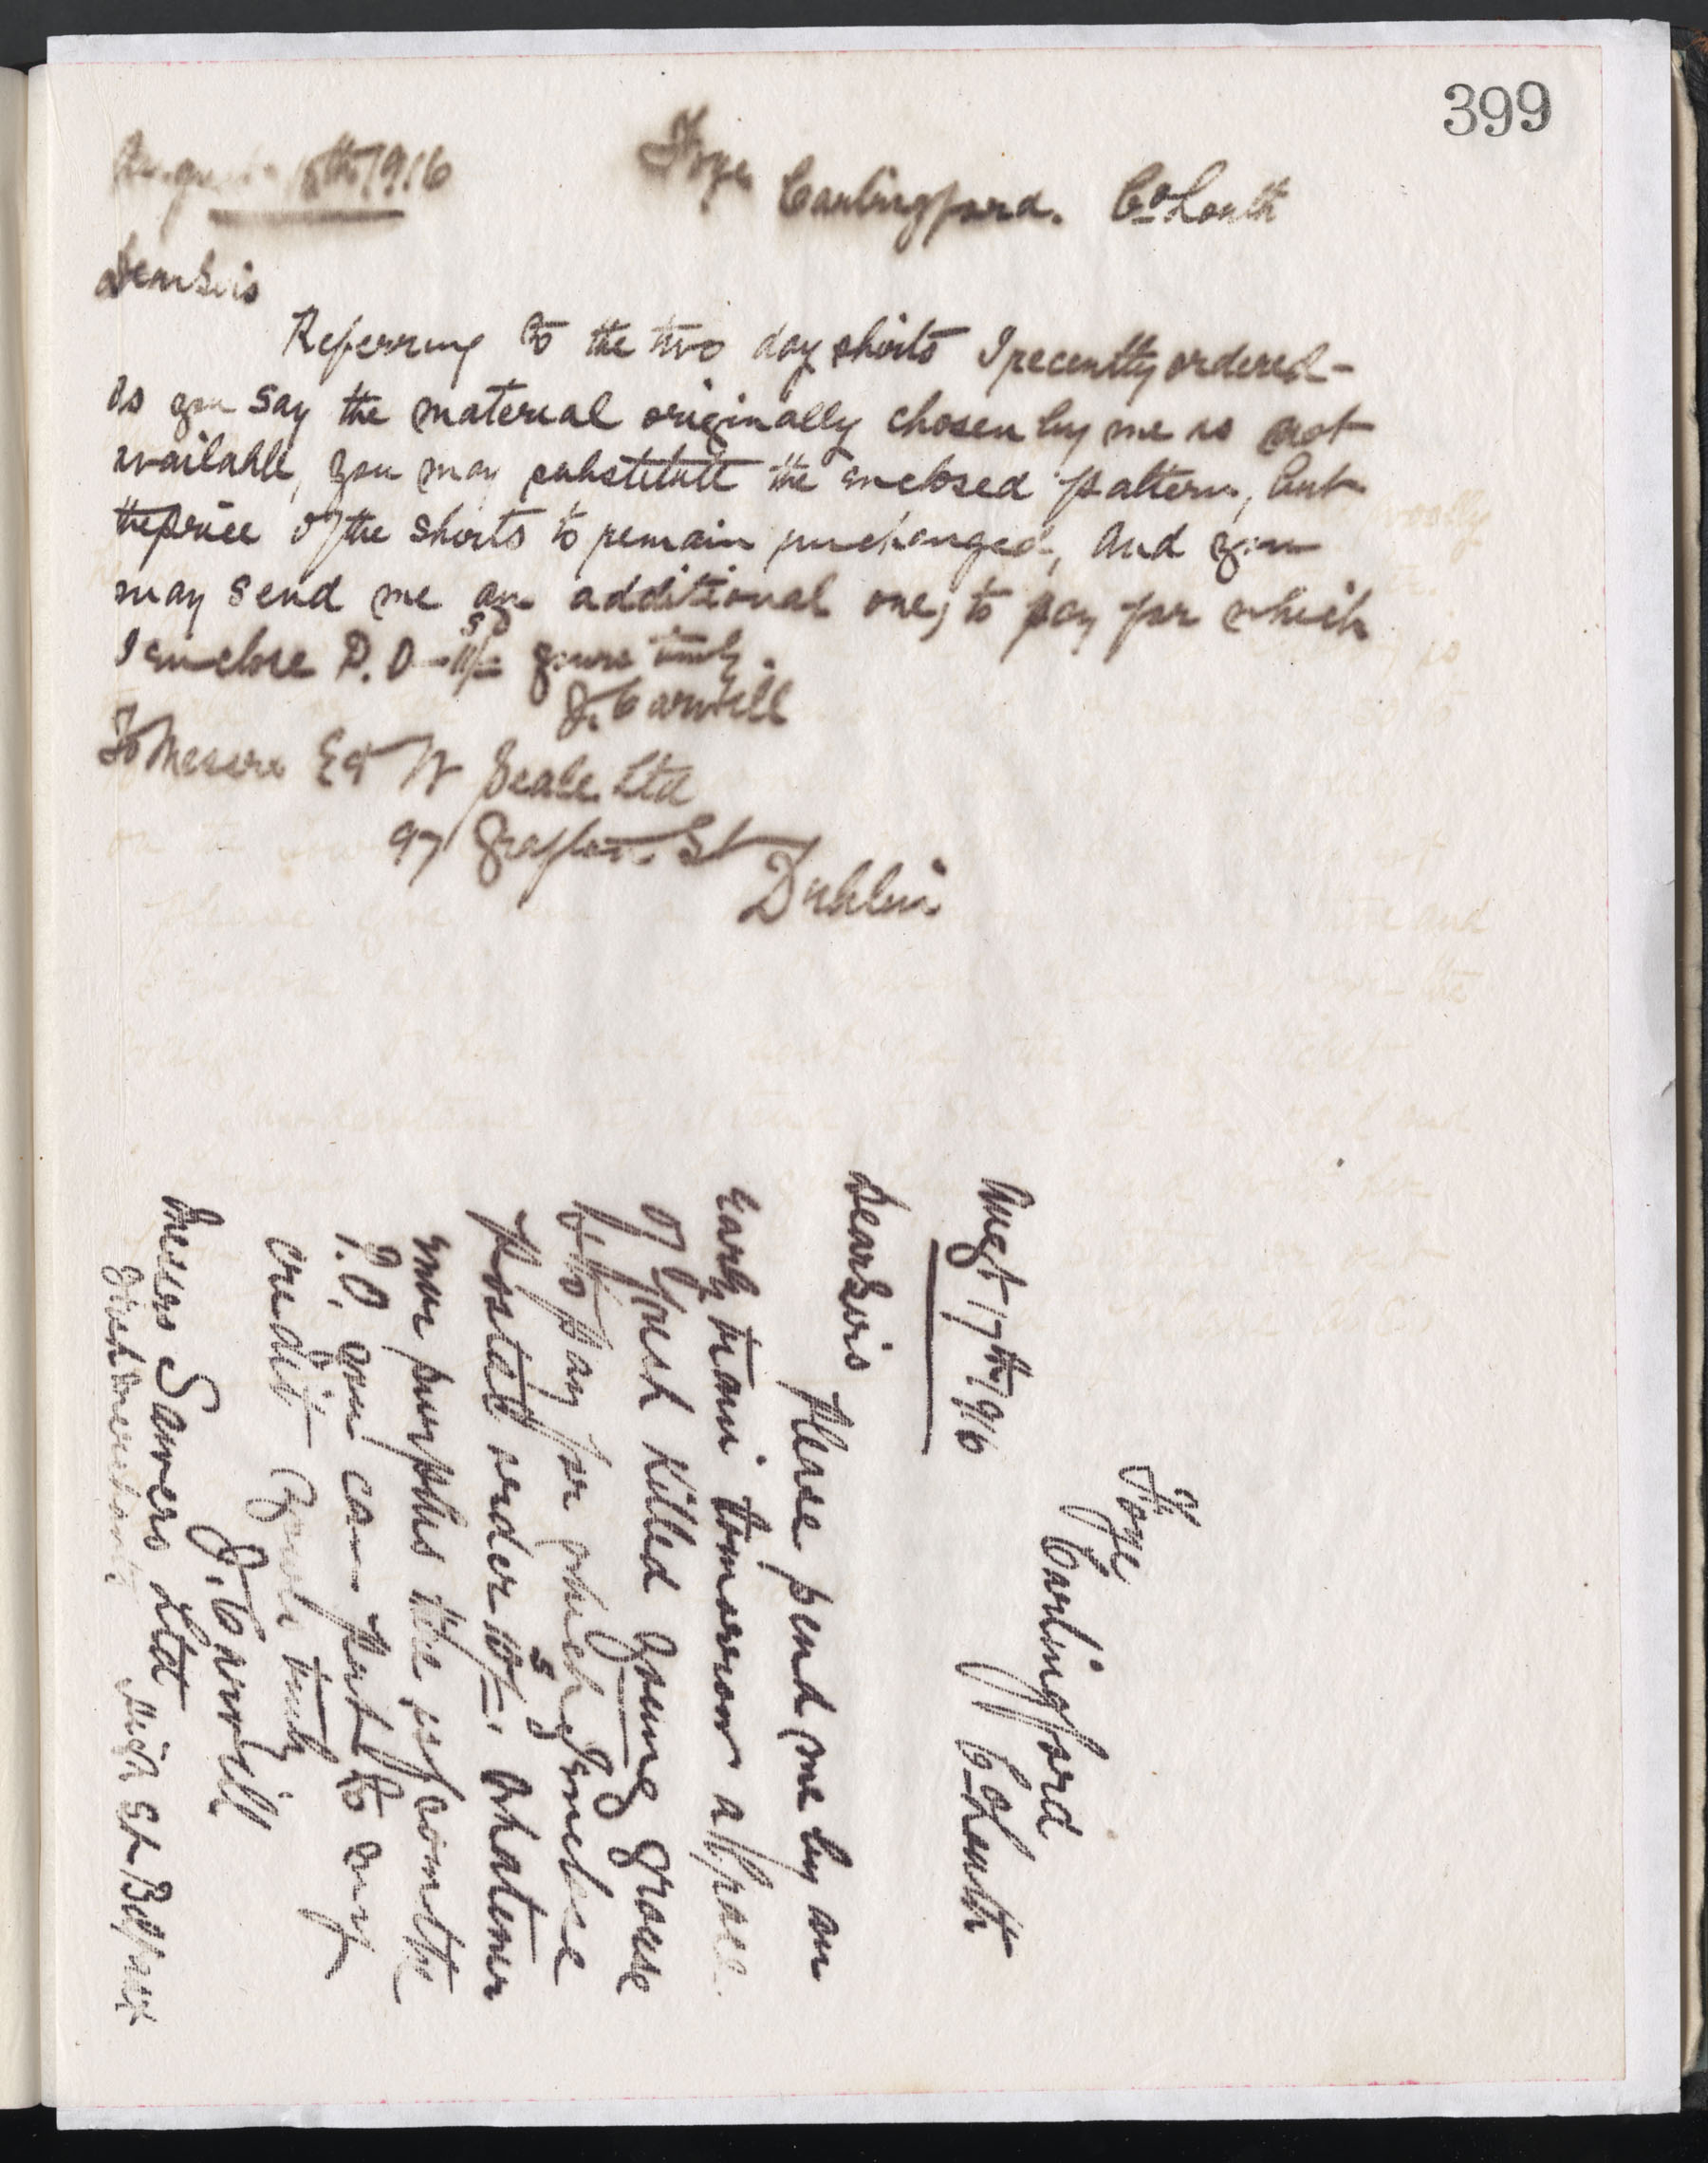 399
August 15th 1916 Foye Carlingford. Co Louth
Dear Sirs
Referring to the two day shirts I recently ordered -
as you say the material originally chosen by me is not
available, you may substitute the enclosed pattern, but
the price of the shirts to remain unchanged, and you
may send me an additional one, to pay for which
I enclose P.O - Yours truly.
J. Carvill
To Messrs E & W Seale Ltd
97 Grafton St
Dublin
Foye
Carlingford Co Louth
Augt 17th 1916
Dear Sirs
Please send me by an
early train tomorrow a
of fresh killed young grouse
to pay for which I enclose
Postal order 10/- whatever
surplus
P.O. you can put to my
credit Yours truly
J. Carvill
Messrs Sawers Ltd
High St Belfast